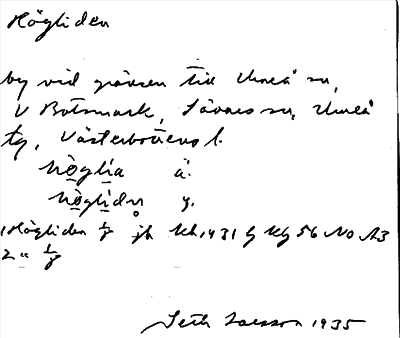 Högliden
by vid gränsen till Umeå sn,
V Botsmark, Sävars sn, Umeå
tg, Västerbottens l.
hö̱gli̱a ä.
hö̱gli̱dn y.
1 Högliden 1/8 jb Kb 1931 G Kg 56 No A3
2 " 1/8
Seth Larsson 1935